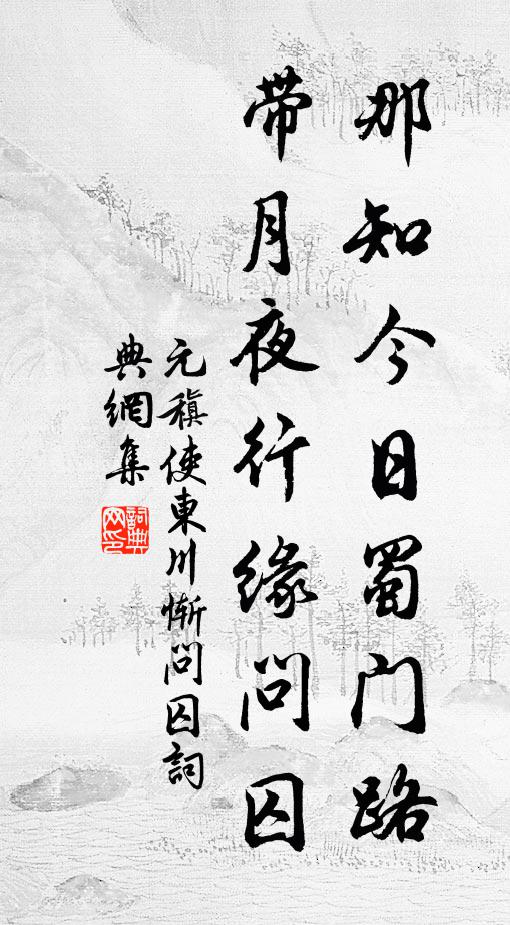 那知今日蜀门路
带月夜行缘问囚
元稹使東川慚問囚詞
典網集
詞典網印